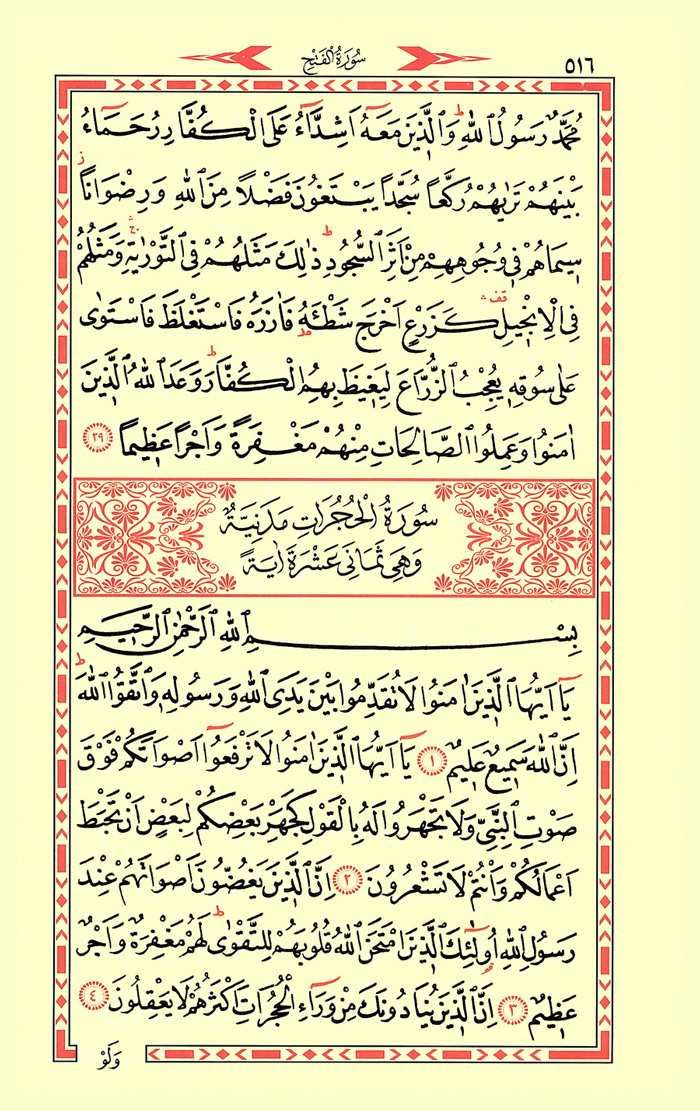 ٥١٦
سُورَةُ الْفَتْحِ
مُحَمَّدٌ رَسُولُ اللّٰهِ ط وَالَّذِينَ مَعَهُٓ اَشِدَّٓاءُ عَلَى الْكُفَّارِ رُحَمَٓاءُ
بَيْنَهُمْ تَرٰيهُمْ رُكَّعًا سُجَّدًا يَبْتَغُونَ فَضْلًا مِنَ اللّٰهِ وَرِضْوَانًا ز
سِيمَاهُمْ فِي وُجُوهِهِمْ مِنْ اَثَرِ السُّجُودِ ط ذٰلِكَ مَثَلُهُمْ فِي التَّوْرٰيةِ ج وَمَثَلُهُمْ
فِي الْاِنْجِيلِ قف كَزَرْعٍ اَخْرَجَ شَطْـَٔهُ فَاٰزَرَهُ فَاسْتَغْلَظَ فَاسْتَوٰى
عَلٰى سُوقِهِ يُعْجِبُ الزُّرَّاعَ لِيَغِيظَ بِهِمُ الْكُفَّارَ ط وَعَدَ اللّٰهُ الَّذِينَ
اٰمَنُوا وَعَمِلُوا الصَّالِحَاتِ مِنْهُمْ مَغْفِرَةً وَاَجْرًا عَظِيمًا ٢٩
سُورَةُ الْحُجُرَاتِ مَدَنِيَّةٌ
وَهِيَ ثَمَانِيَ عَشْرَةَ اٰيَةً
بِسْمِ اللّٰهِ الرَّحْمٰنِ الرَّحِيمِ
يَٓا اَيُّهَا الَّذِينَ اٰمَنُوا لَا تُقَدِّمُوا بَيْنَ يَدَيِ اللّٰهِ وَرَسُولِهِ وَاتَّقُوا اللّٰهَ ط
اِنَّ اللّٰهَ سَمِيعٌ عَلِيمٌ ١ يَٓا اَيُّهَا الَّذِينَ اٰمَنُوا لَا تَرْفَعُٓوا اَصْوَاتَكُمْ فَوْقَ
صَوْتِ النَّبِيِّ وَلَا تَجْهَرُوا لَهُ بِالْقَوْلِ كَجَهْرِ بَعْضِكُمْ لِبَعْضٍ اَنْ تَحْبَطَ
اَعْمَالُكُمْ وَاَنْتُمْ لَا تَشْعُرُونَ ٢ اِنَّ الَّذِينَ يَغُضُّونَ اَصْوَاتَهُمْ عِنْدَ
رَسُولِ اللّٰهِ اُو۬لٰٓئِكَ الَّذِينَ امْتَحَنَ اللّٰهُ قُلُوبَهُمْ لِلتَّقْوٰى ط لَهُمْ مَغْفِرَةٌ وَاَجْرٌ
عَظِيمٌ ٣ اِنَّ الَّذِينَ يُنَادُونَكَ مِنْ وَرَٓاءِ الْحُجُرَاتِ اَكْثَرُهُمْ لَا يَعْقِلُونَ ٤
وَلَوْ